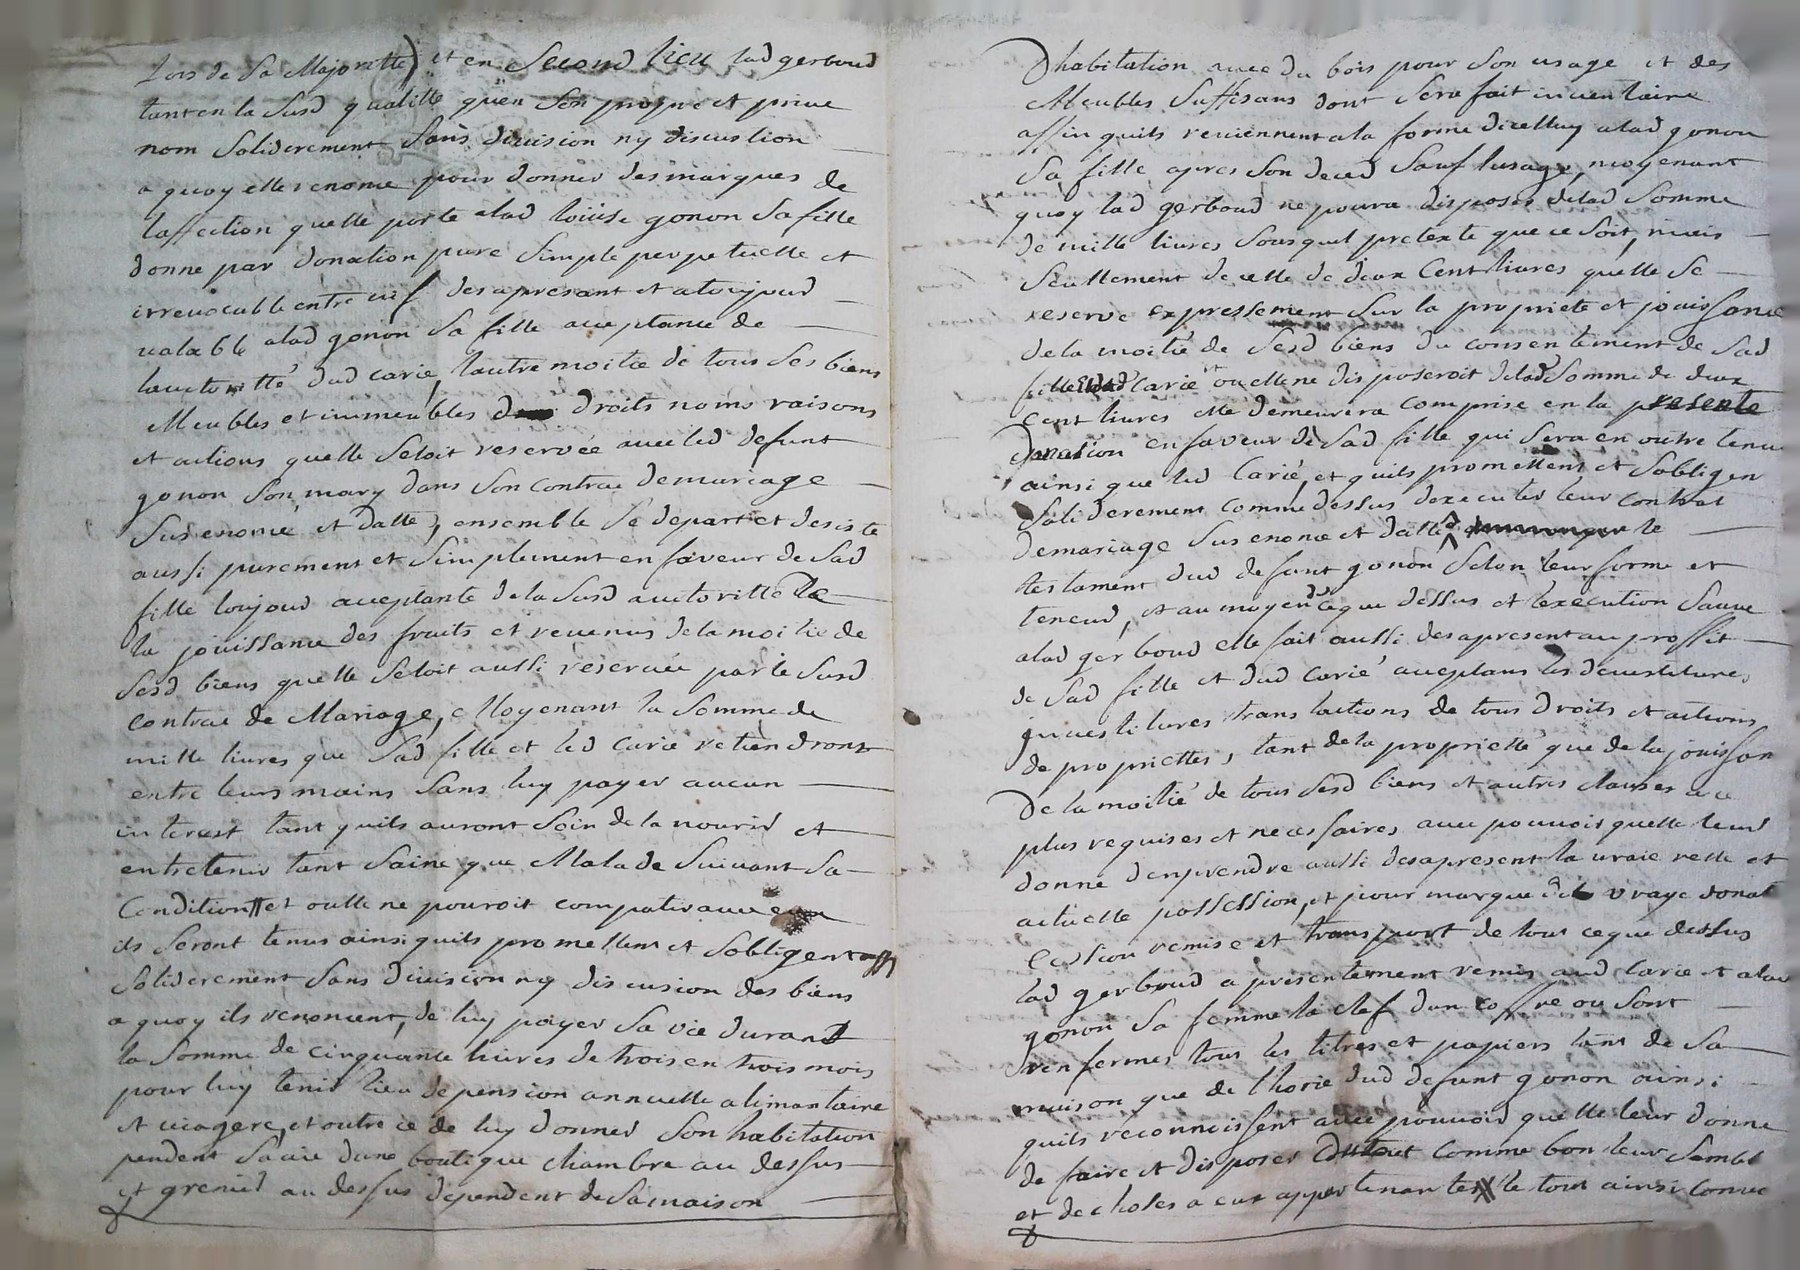 Lors de Sa Majoritté) et en Second lieu lad gerboud
tant en la Susd qualitté quen Son propre et prive
nom Soliderement Sans division ny discustion
a quoy elle renonce pour donner des marques de
laffection quelle porte alad loüise gonon Sa fille
donne par donation pure Simple perpetuelle et
irrevocable entre vif des apresant et atoujoud
valable alad gonon Sa fille acceptante de
lauctoritté dud carié, lautre moitie de tous Ses biens
Meubles et immeubles droits noms raisons
et actions quelle Setoit reservée avec led defunt
gonon Son mary dans Son Contrac de mariage
Susenoncé et datté, ensemble Se depart et desiste
aussi purement et Simplement en faveur de Sad
fille toujoud acceptante de la Susd auctoritté De
la joüissance des fruits et revenus de la moitié de
Sesd biens quelle Setoit aussi reservée par le Susd
contrac de Mariage, Moyenant la Somme de
mille livres que Sad fille et led Carié retiendront
entre leurs mains Sans luy payer aucun
interest tant quils auront Soin de la nourid et
entretenir tant Saine que Malade Suivant Sa
Condition et ou elle ne pouroit compatir avec eux
ils Seront tenus ainsi quils promettent et Sobligent
Soliderement Sans division ny discusion des biens
a quoy ils renoncent, de luy payer Sa vie durant
la Somme de cinquante livres de trois en trois mois
pour luy tenir lieu de pension annuelle alimantaire
et viagere, et outre ce de luy donner Son habitation
pendent Savie dune boutique chambre au dessus
et grenied au dessus dependent de Samaison
Dhabitation avec du bois pour Son usage et des
Meubles Suffisans dont Sera fait inventaire
affin quils reviennent a la forme dicelluy alad gonon
Sa fille apres Son deced Sauf lusage, moyenant
quoy lad gerboud ne poura disposer delad Somme
de mille livres Sousquel pretexte que ce Soit, mais
Seullement de celle de deux Cent livres quelle Se
reserve expressement Sur la propriete et joüissance
de la moitié de Sesd biens du consentement de Sad
fille Carié et ou elle ne disposeroit delad Somme de deux
Cent livres elle demeurera comprise en la presente
Donation en faveur de Sad fille qui Sera en outre tenue
ainsi que led Carié, et quils promettent et Sobligen
Soliderement comme dessus dexecuter leur Contrat
de mariage Susenoncé et datté le
testament dud defunt gonon Selon leur forme et
teneud, et au moyen de ce que dessus et lexecution Sauve
alad gerboud elle fait aussi des apresent au proffit
de Sad fille et dud Carié acceptans les devestitures
investitures translactions de tous droits et actions
de propriettés, tant de la proprietté que de la joüissan
De la moitié de tous Sesd biens et autres clauses a ce
plus requises et necessaires avec pouvoir quelle leur
donne den prendre aussi des apresent la vraie relle et
actuelle possession, et pour marque de vraye donat
Cession remise et transport de tout ce que dessus
lad gerboud a presentement remis aud Carié et alad
gonon Sa femme la clef dun coffre ou Sont
renfermes tous les titres et papiers tant de Sa
maison que de lhoirie dud defunt gonon ainsi
quils reconnoissent avec pouvoir quelle leur donne
de faire et disposer du tout comme bon leur Semble
et de choses a eux appartenantes le tout ainsi Convec